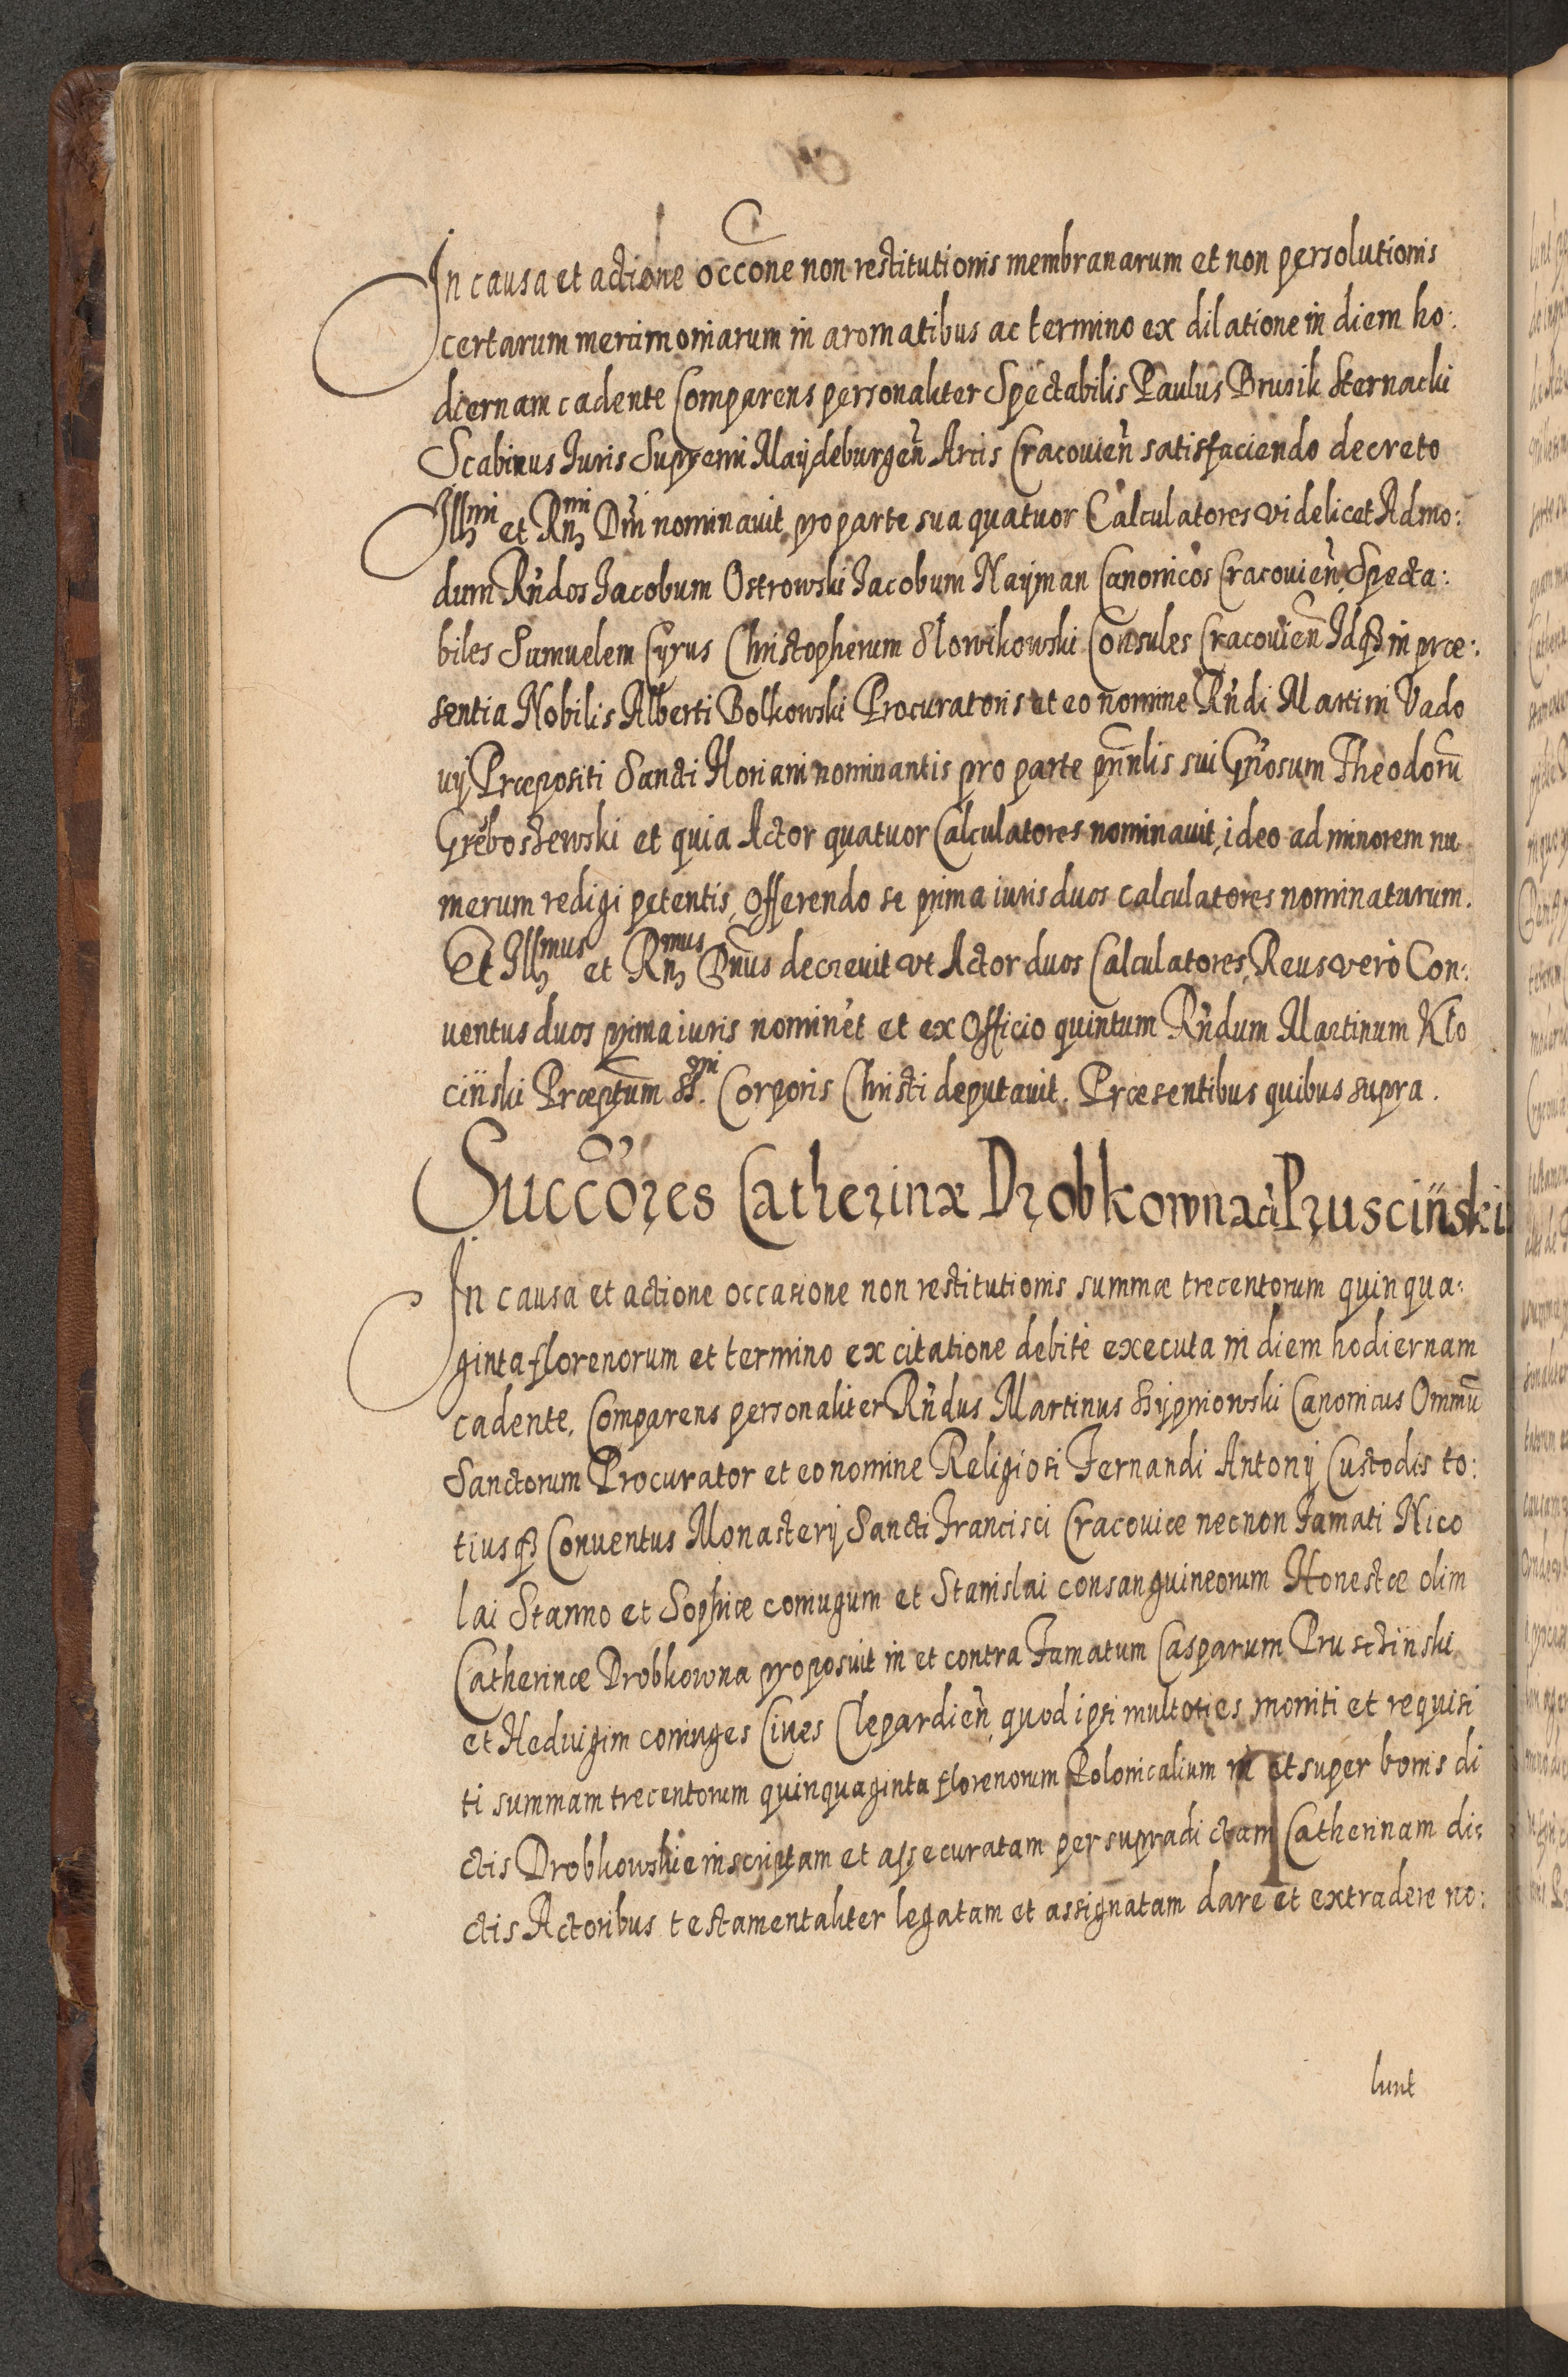 In causa et actione occone non restitutionis membranarum et non persolutionis
certarum mercimoniarum in aromatibus ac termino ex dilatione in diem ho:
diernam cadente Comparens personaliter Spectabilis Paulus Brusik Sternacki
Scabinus Iuris Supremi Maydeburgen̄ Arcis Cracouien̄ satisfaciendo decreto
Illmi et Rnmi Dni nominauit pro parte sua quatuor Calculatores videlicet Admo:
dum Rndos Iacobum Ostrowski Iacobum Nayman Canonicos Cracouien̄ Specta:
biles Samuelem Cyrus Christopherum Słowikowski Consules Cracouien̄ Idq3 in præ:
sentia Nobilis Alberti Bolkowski Procuratoris et eo nomine Rndi Martini Vado
uij Præpositi Sancti Floriani nominantis pro parte pn̄nlis sui Gn̄osum Theodorū
Greboszewski et quia Actor quatuor Calculatores nominauit, ideo ad minorem nu
merum redigi petentis, Offerendo se prima iuris duos calculatores nominaturum.
Et Illmus et Rnmus Dnus decreuit vt Actor duos Calculatores, Reus verò Con:
uentus duos prima iuris nominet et ex Officio quintum Rndum Martinum Kło
ciński Præptum SSmi. Corporis Christi deputauit. Præsentibus quibus supra.
Succōres Catherinæ Drobkowna cū Pruscinski
In causa et actione occasione non restitutionis summæ trecentorum quinqua:
ginta florenorum et termino ex citatione debitè executa in diem hodiernam
cadente, Comparens personaliter Rndus Martinus Canonicus Omniū
Sanctorum Procurator et eo nomine Religiosi Fernandi Antonij Custodis to:
tiusq3 Conuentus Monasterij Sancti Francisci Cracouiæ necnon Famati Nico
lai Stanno et Sophiæ coniugum et Stanislai consanguineorum Honestæ olim
Catherinæ Drobkowna proposuit in et contra Famatum Casparum Pruscżinski
et Heduigim coniuges Ciues Clepardien̄ quod ipsi multoties moniti et requisi
ti summam trecentorum quinquaginta florenorum Polonicalium in et super bonis di
ctis Drobkowskie inscriptam et assecuratam per supradictam Catherinam di:
ctis Actoribus testamentaliter legatam et assignatam dare et extradere no:
lunt